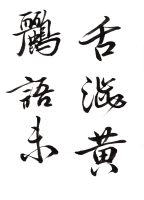 舌澀黃
鸝語未